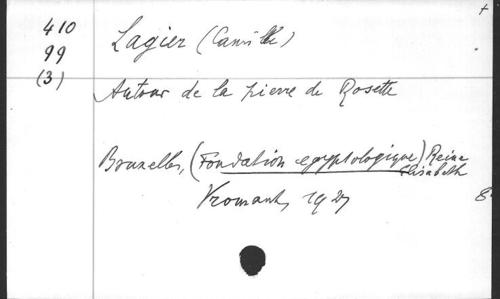 410
99
(3)
Lagier (Camille)
Autour de la pierre de Rosette
Bruxelles, (Fondation egyptologique) Reine
Elisabeth
Vromant, 1927
8°